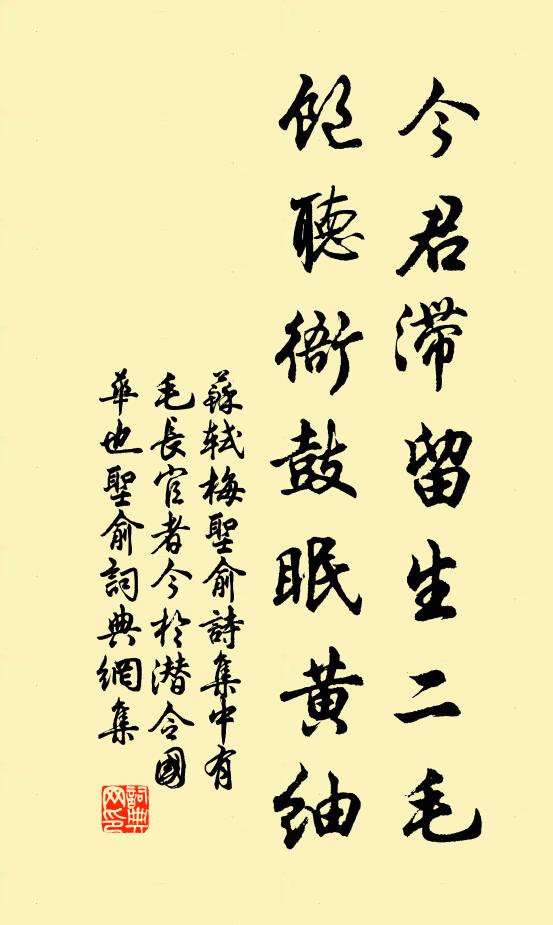 今君滞留生二毛
飽聽衙鼓眠黃紬
蘇軾梅聖俞詩集中有
毛長官者今於潛令國
華也聖俞詞典網集
詞典網印